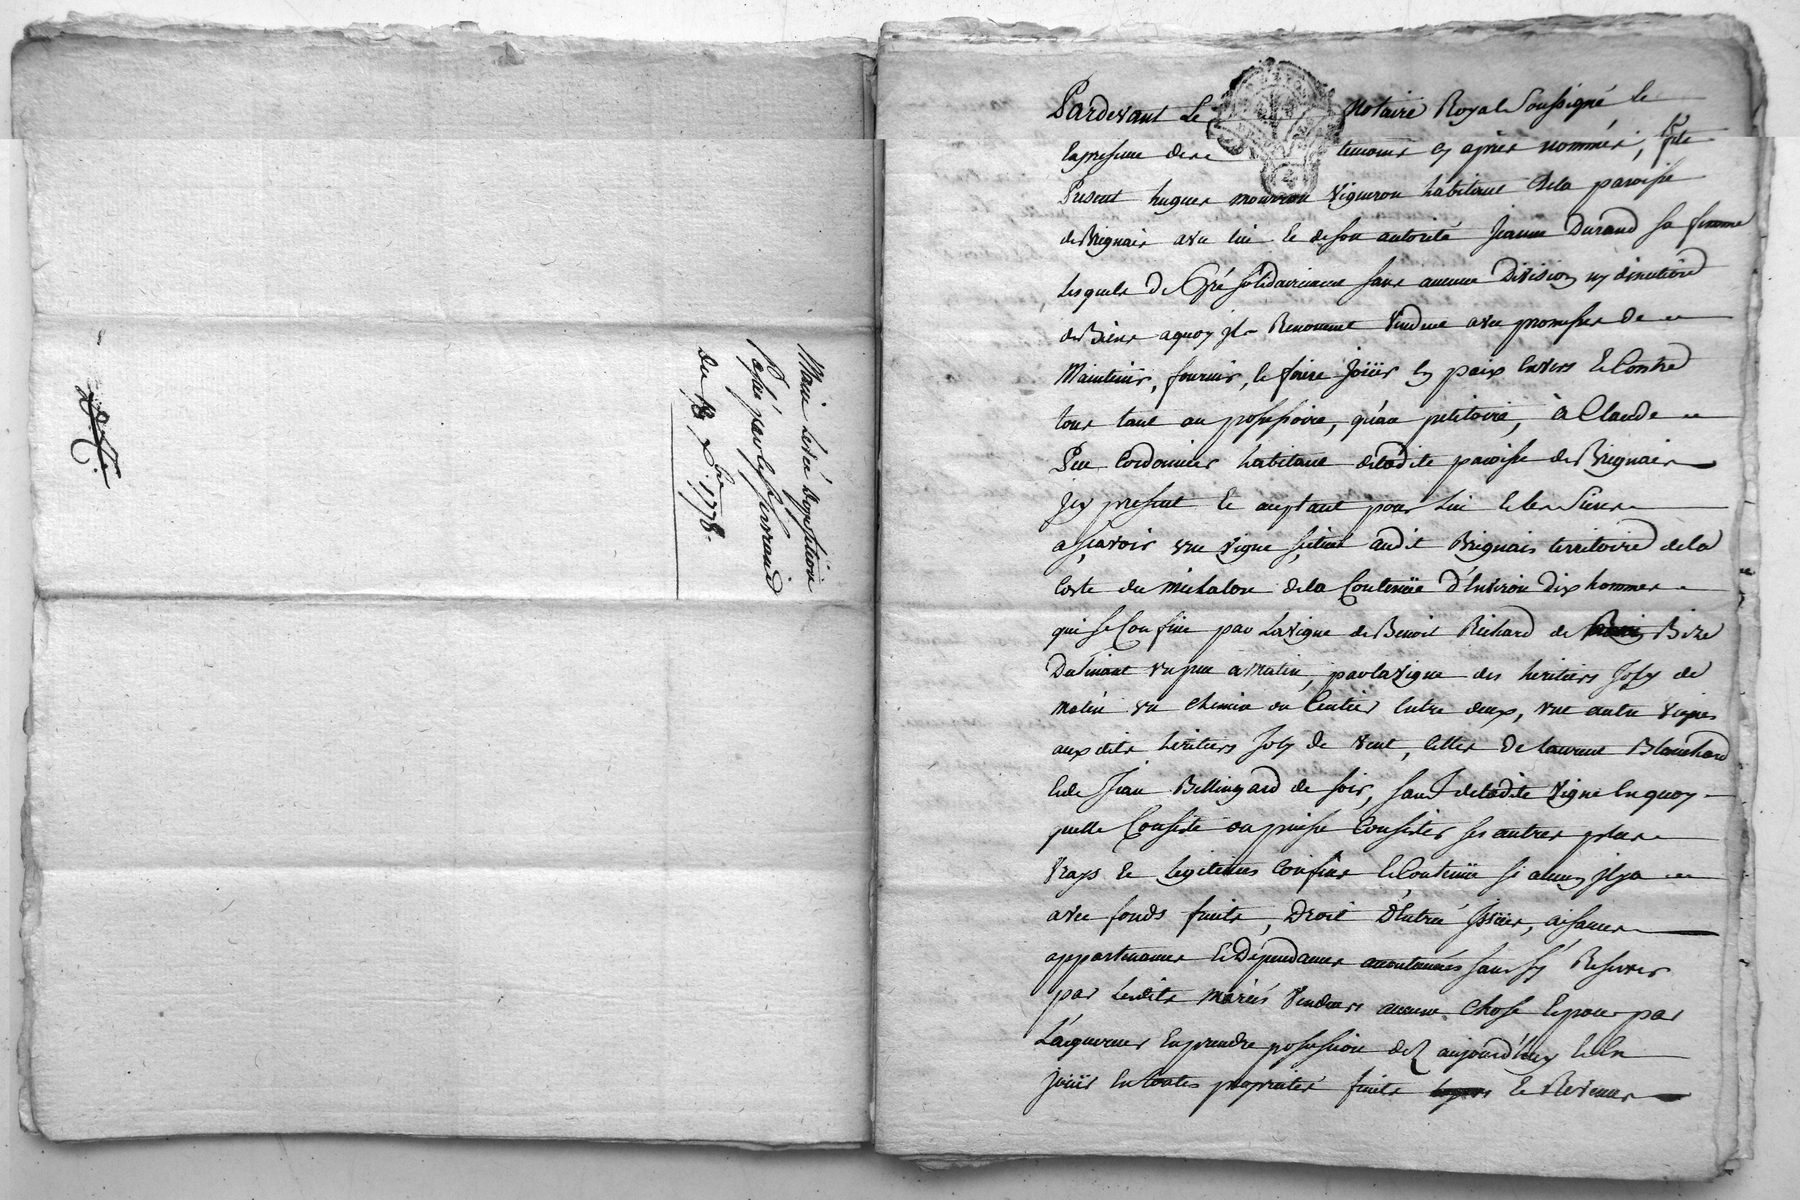 Main levée d'opposition
passée par les ferrand
du 18 xbre 1778.
Pardevant Le Notaire Royal Soussigné Et
En presence des temoins cy après nommés, fut
Present hugues mourron vigneron habitant dela paroisse
de Brignais avec lui Et de son autorité Jeanne Durand sa femme
Lesquels De Gré solidairement sans aucune Division ny discution
de Biens a quoy ils Renoncent Vendent avec promesses de
Maintenir, fournir, et faire Joüir En paix Envers Et Contre
tous tant au possessoire, qu'au petitoire, à Claude
Cordonnier habitant deladite paroisse de Brignais
Icy present Et aceptant pour Lui Et les Siens
a sçavoir une vigne scituée audit Brignais territoire dela
Coste du michalon dela Contenüe d'Environ dix hommes
qui se Confine par La vigne de Benoit Richard de Bize
Declinant un peu a Matin, par la Vigne des heritiers Joly de
Matin un chemin ou Sentier Entre deux, une autre vigne
auxdits heritiers Joly de vent, Celles De Laurent Blanchard
Et de Jean Bellingard de soir, sauf deladite Vigne En quoy
quelle Consiste ou puisse Consister ses autres plus
Vrays Et Legitimes Confins Et Contenüe si aucuns Il y a
avec fonds fruits, Droit d'Entrée Issües, aisances
appartenances Et Dépendances accoutumées sans s'y Reserver
par Lesdits mariés Vendeurs aucune Chose Et pour par
L'acquereur En prendre possession dez aujourd'huy Et En
Joüir En toutes proprietés fruits Et Revenus